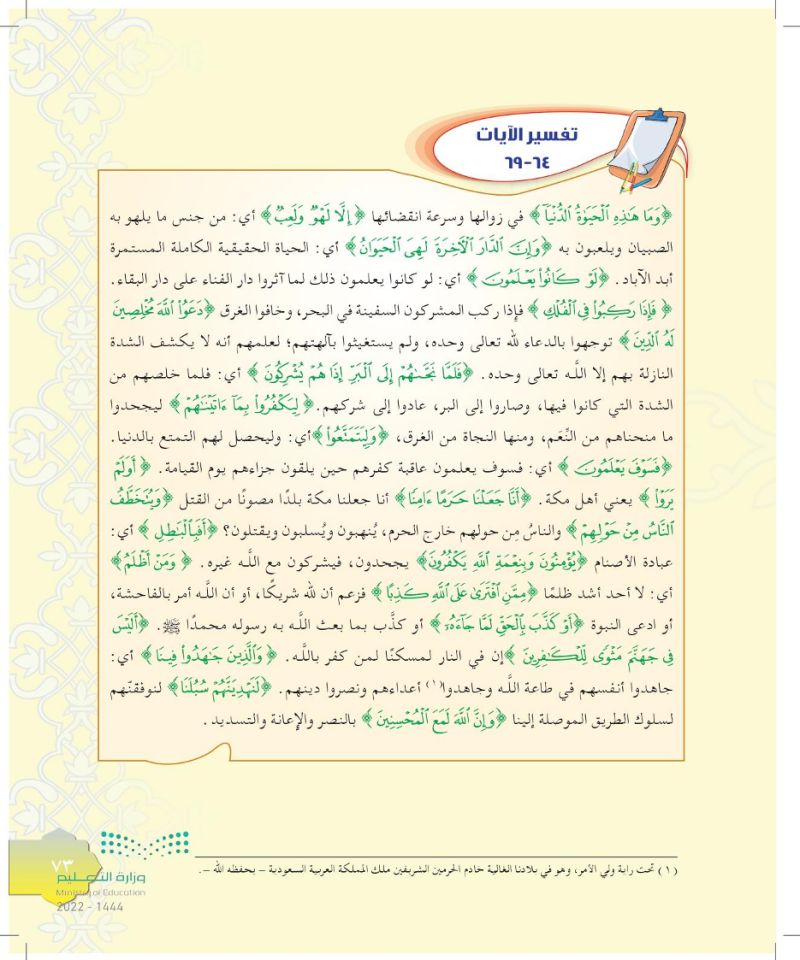 تفسير الآيات
٦٤-٦٩
﴿وَمَا هَٰذِهِ ٱلْحَيَوٰةُ ٱلدُّنْيَآ﴾ في زوالها وسرعة انقضائها ﴿إِلَّا لَهْوٌ وَلَعِبٌ﴾ أي: من جنس ما يلهو به
الصبيان ويلعبون به ﴿وَإِنَّ ٱلدَّارَ ٱلْآخِرَةَ لَهِىَ ٱلْحَيَوَانُ﴾ أي: الحياة الحقيقية الكاملة المستمرة
أبد الآباد. ﴿لَوْ كَانُوا۟ يَعْلَمُونَ﴾ أي: لو كانوا يعلمون ذلك لما آثروا دار الفناء على دار البقاء.
﴿فَإِذَا رَكِبُوا۟ فِى ٱلْفُلْكِ﴾ فإذا ركب المشركون السفينة في البحر، وخافوا الغرق ﴿دَعَوُا۟ ٱللَّهَ مُخْلِصِينَ
لَهُ ٱلدِّينَ﴾ توجهوا بالدعاء لله تعالى وحده، ولم يستغيثوا بآلهتهم؛ لعلمهم أنه لا يكشف الشدة
النازلة بهم إلا اللـه تعالى وحده. ﴿فَلَمَّا نَجَّىٰهُمْ إِلَى ٱلْبَرِّ إِذَا هُمْ يُشْرِكُونَ﴾ أي: فلما خلصهم من
الشدة التي كانوا فيها، وصاروا إلى البر، عادوا إلى شركهم. ﴿لِيَكْفُرُوا۟ بِمَآ ءَاتَيْنَٰهُمْ﴾ ليجحدوا
ما منحناهم من النِّعَم، ومنها النجاة من الغرق، ﴿وَلِيَتَمَتَّعُوا۟﴾ أي: وليحصل لهم التمتع بالدنيا.
﴿فَسَوْفَ يَعْلَمُونَ﴾ أي: فسوف يعلمون عاقبة كفرهم حين يلقون جزاءهم يوم القيامة. ﴿أَوَلَمْ
يَرَوْا۟﴾ يعني أهل مكة. ﴿أَنَّا جَعَلْنَا حَرَمًا ءَامِنًا﴾ أنا جعلنا مكة بلدًا مصونًا من القتل ﴿وَيُتَخَطَّفُ
ٱلنَّاسُ مِنْ حَوْلِهِمْ﴾ والناسُ مِن حولهم خارج الحرم، يُنهبون ويُسلبون ويقتلون؟ ﴿أَفَبِٱلْبَٰطِلِ﴾ أي:
عبادة الأصنام ﴿يُؤْمِنُونَ وَبِنِعْمَةِ ٱللَّهِ يَكْفُرُونَ﴾ يجحدون، فيشركون مع اللـه غيره. ﴿وَمَنْ أَظْلَمُ﴾
أي: لا أحد أشد ظلمًا ﴿مِمَّنِ ٱفْتَرَىٰ عَلَى ٱللَّهِ كَذِبًا﴾ فزعم أن لله شريكًا، أو أن اللـه أمر بالفاحشة،
أو ادعى النبوة ﴿أَوْ كَذَّبَ بِٱلْحَقِّ لَمَّا جَآءَهُۥٓ﴾ أو كذَّب بما بعث اللـه به رسوله محمدًا ﷺ. ﴿أَلَيْسَ
فِى جَهَنَّمَ مَثْوًى لِّلْكَٰفِرِينَ﴾ إن في النار لمسكنًا لمن كفر باللـه. ﴿وَٱلَّذِينَ جَٰهَدُوا۟ فِينَا﴾ أي:
جاهدوا أنفسهم في طاعة اللـه وجاهدوا(١) أعداءهم ونصروا دينهم. ﴿لَنَهْدِيَنَّهُمْ سُبُلَنَا﴾ لنوفقنّهم
لسلوك الطريق الموصلة إلينا ﴿وَإِنَّ ٱللَّهَ لَمَعَ ٱلْمُحْسِنِينَ﴾ بالنصر والإعانة والتسديد.
(١) تحت راية ولي الأمر، وهو في بلادنا الغالية خادم الحرمين الشريفين ملك المملكة العربية السعودية – يحفظه الله –.
٧٣
وزارة التعـليم
Ministry of Education
2022 - 1444